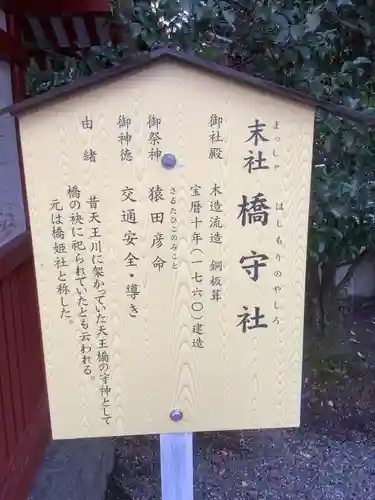 末社 橋守社
まっしゃ はしもりのやしろ
御社殿 木造流造 銅板葺
宝暦十年(一七六〇)建造
御祭神 猿田彦命
さるたひこのみこと
御神徳 交通安全・導き
由緒
昔天王川に架かっていた天王橋の守神として
橋の袂に祀られていたとも云われる。
元は橋姫社と称した。